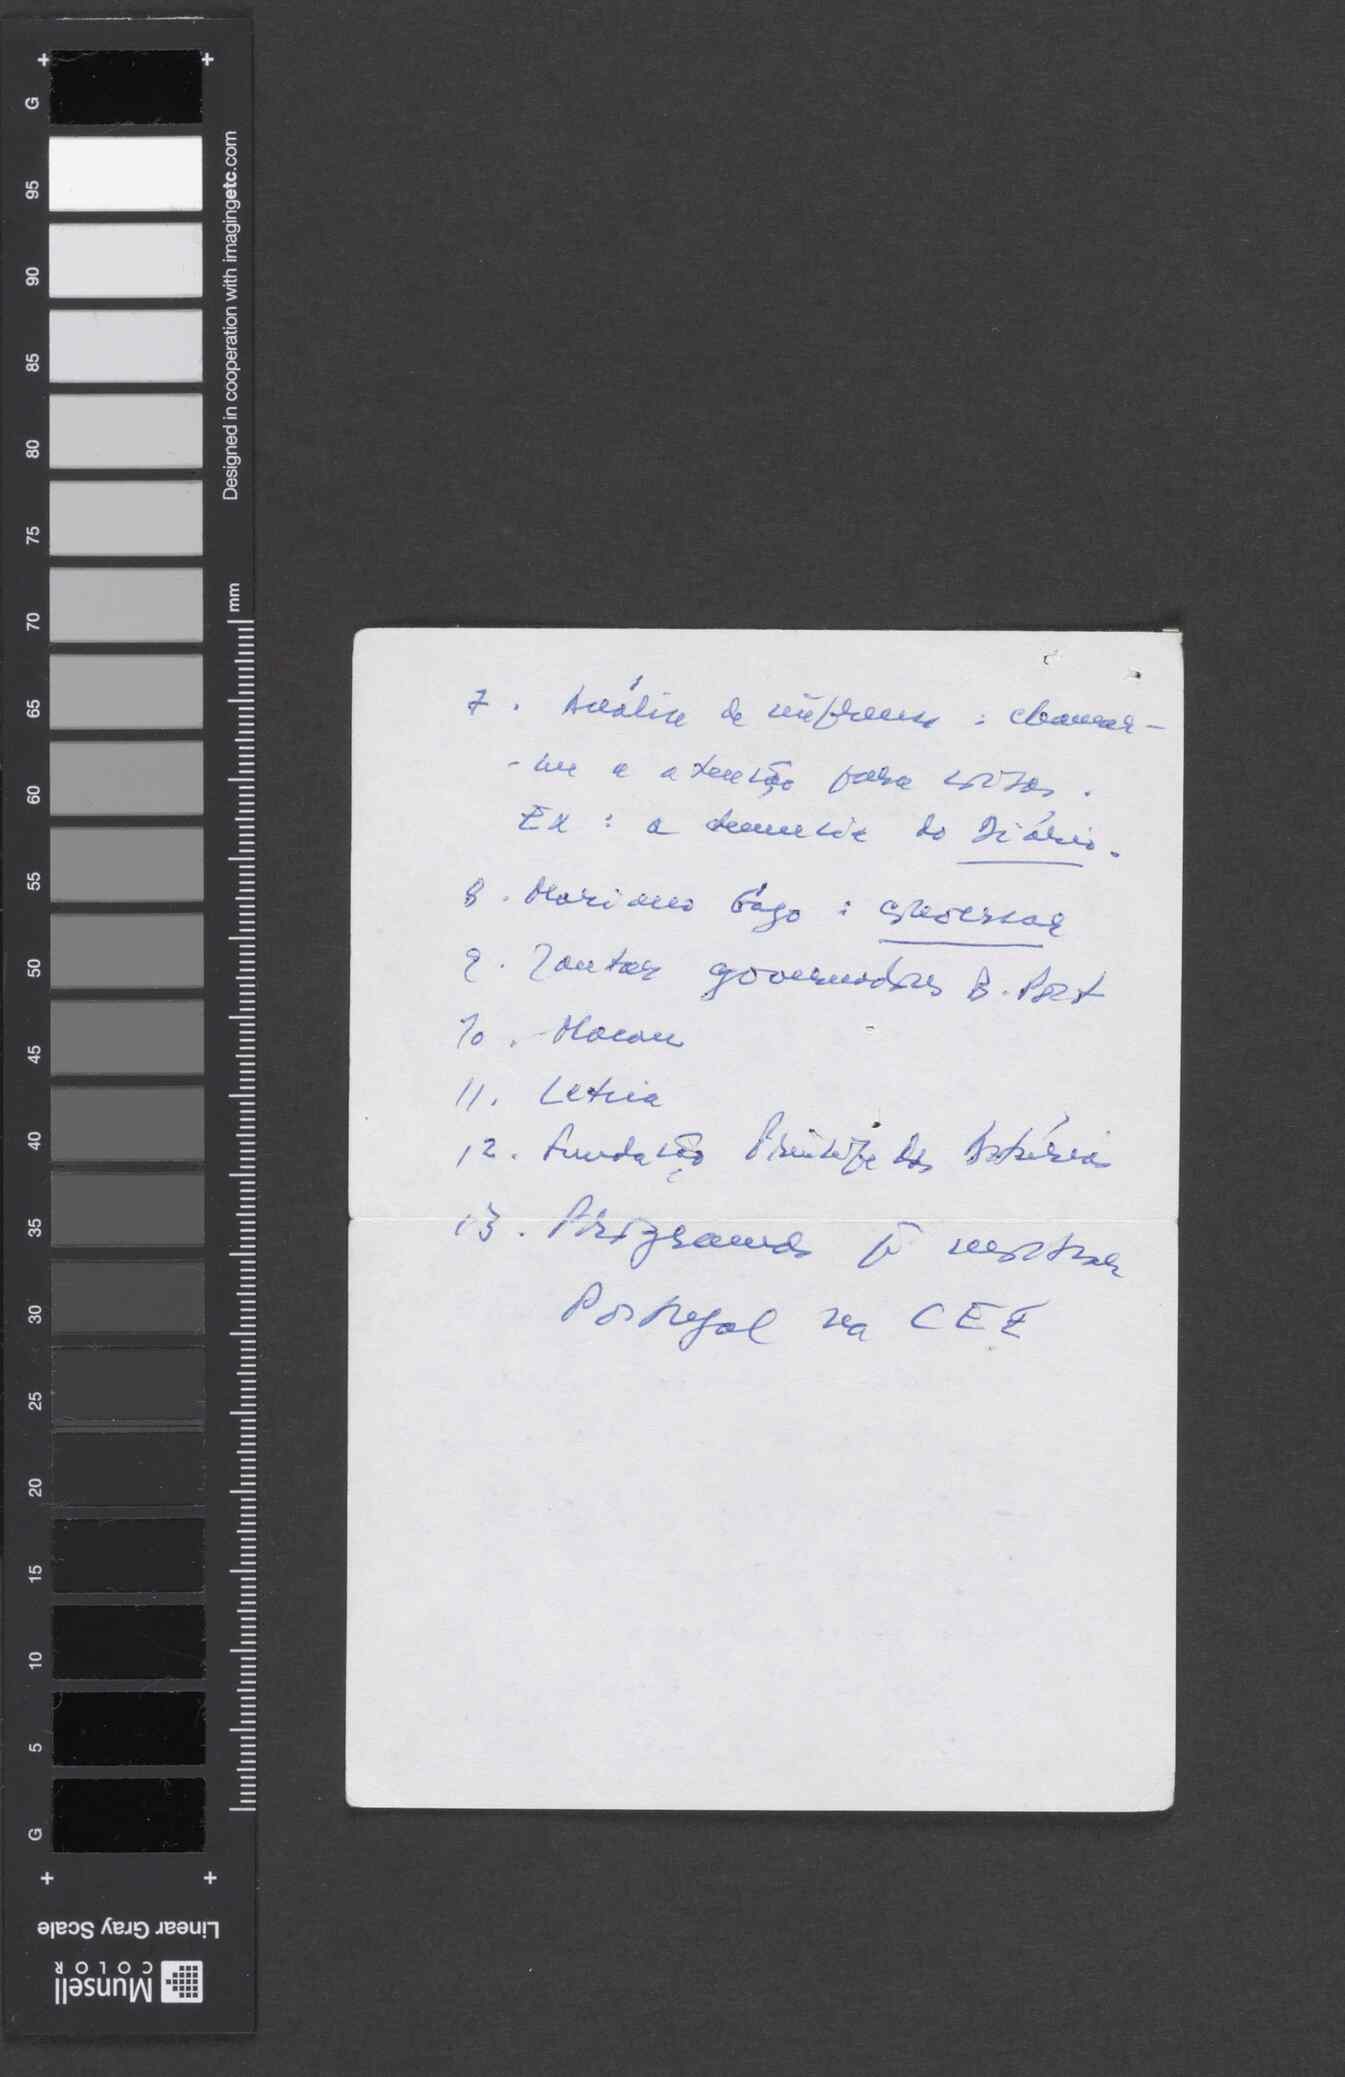 G
95
90
85
80
75
70
65
60
55
50
45
40
35
30
25
20
15
10
5
G
Designed in cooperation with imagingetc.com
mm
Linear Gray Scale
Munsell
COLOR
7. Análise de imprensa : chamar-
-me a atenção para coisas.
Ex : a denúncia do Diário.
8. Mariano Gago : conversar
9. Jantar governadores B. Port
10. Macau
11. Letria
12. Fundação Príncipe das Astúrias
13. Programas p mostrar
Portugal na CEE